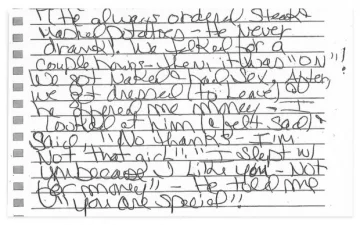 (He always ordered Steak &
Mashed Potatoes - He Never
drank). We talked for a
couple hours - then it was "ON"!
We got Naked + had Sex. After
we got dressed (to leave)
he offered me money - I
looked at him (I felt sad) &
Said, "No thanks - I'm
Not that girl". "I slept w/
you because I like you - Not
for money" - He told me
"you are special"!